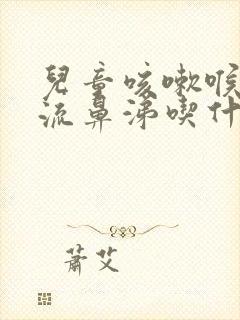 兒童咳嗽喉
流鼻涕喫什
蕭艾